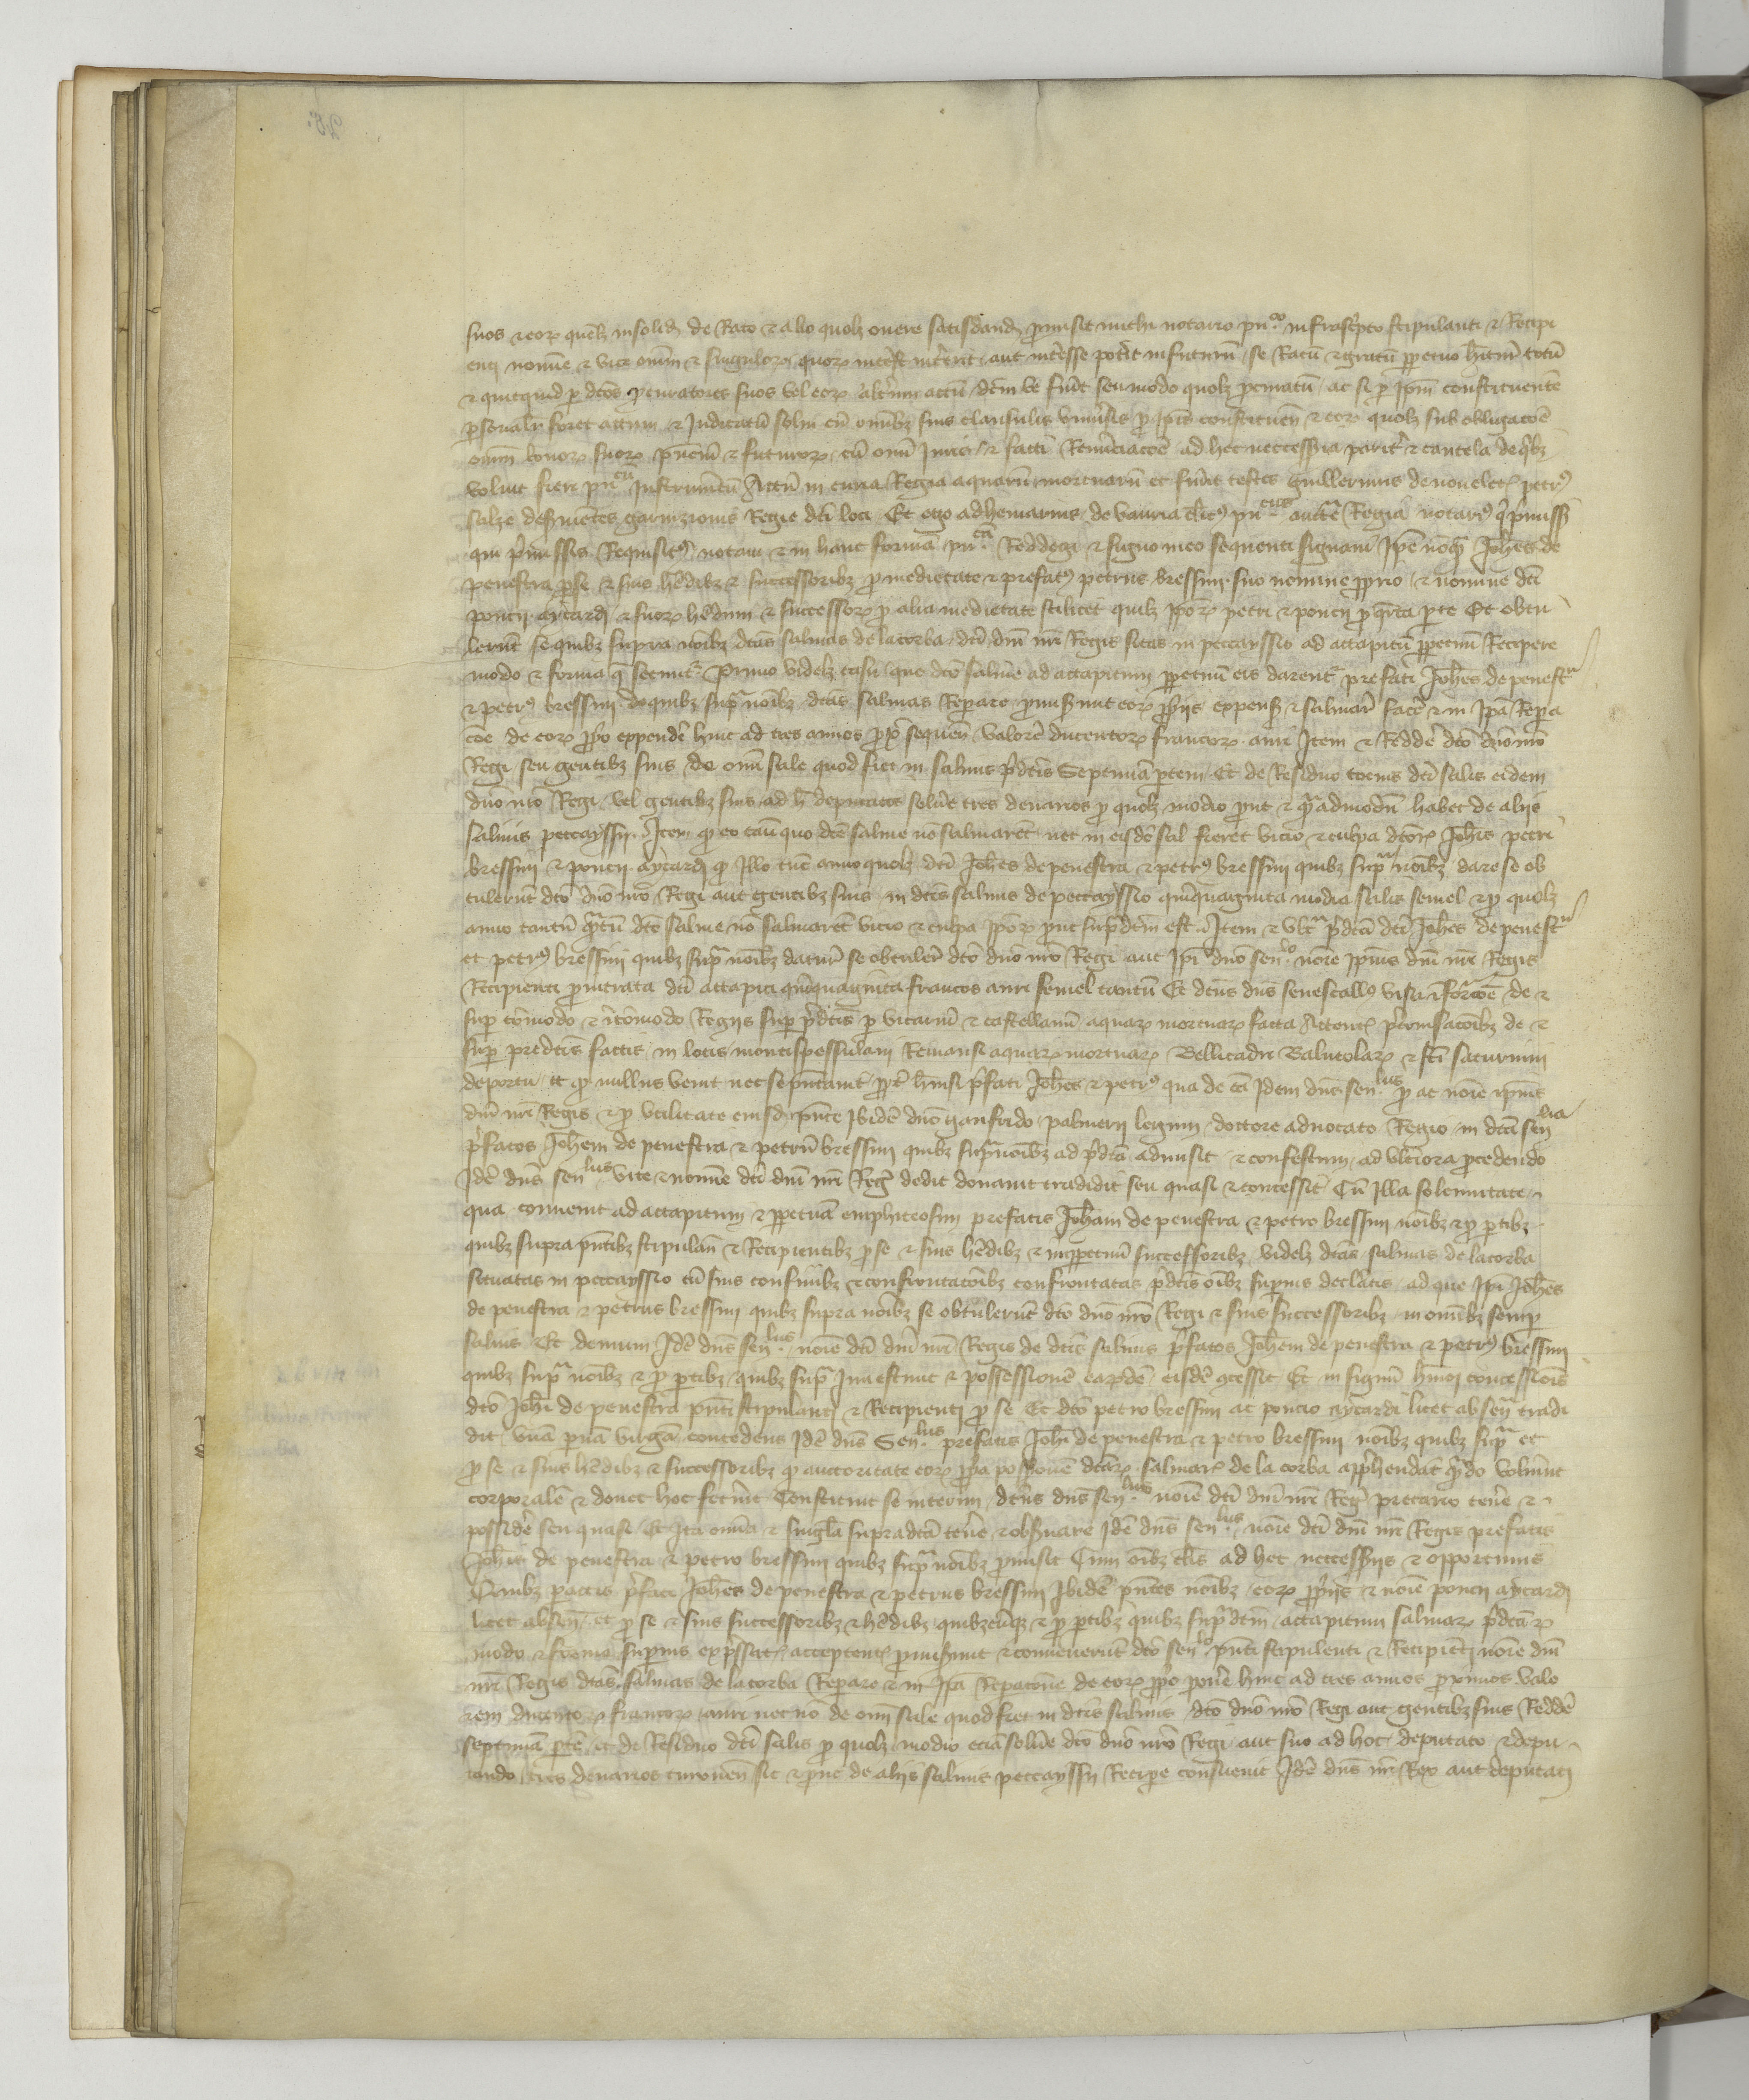 suos et eorum quemlibet insolidum de Rato et alio quolibet onere satisdandi promisit michi notario publico infrascripto stipulanti et Recipi
enti nomine et vice omnium et singulorum quorum interest intererit aut interesse poterit in futurum se Ratum et gratum perpetuo habiturum totum
et quicquid per dictos procuratores suos vel eorum alterum actum dictum ve fuerit seu modo quolibet procuratum ac si per Ipsum constituentem
personaliter foret actum et Iudicatum solvi cum omnibus suis clausulis universis pro ipsis constituen et eorum quolibet sub obligacione
omnium bonorum suorum presencium et futurorum cum omni Iuris et facti Renunciacione ad hec neccessaria pariter et cautela de quibus
voluit fieri publicum Instrumentum Actum in curia Regia aquarum mortuarum et fuerunt testes guillermus de novelet petrus
salze deservientes garnizionis Regie dicti loci Et ego adhemarius de vauria clericus publicus auctoritate Regia notarius qui premissis
qui premissis Requisitus notam et in hanc formam publicam Reddegi et signo meo sequenti signavi Ipse namque Johannes de
penestra pro se et suis heredibus et successoribus pro medietate et prefatus petrus bressiin suo nomine proprio et nomine dicti
poncii aycardi et suorum heredum et successorum pro alia medietate scilicet quilibet ipsorum petri et poncii pro quarta parte Et obtu
lerunt se quibus supra nominibus dictas salinas de lacorba dicti domini nostri Regis sitas in peccayssio ad accapitum perpetuum Recipere
modo et forma que secuntur Primo videlicet casu quo dicte saline ad accapitum perpetuum eis darentur prefati Johannes de penestra
et petrus bressiin quibus supra nominibus dictas salinas Reparare promiserunt eorum propriis expensis et salinare facere et in Ipsa Repara
cione de eorum proprio expendere hinc ad tres annos proximo sequentes valorem ducentorum francorum auri Item et Reddere dicto domino nostro
Regi seu gentibus suis de omni sale quod fiet in salinis predictis Septimam partem Et de Residuo tocius dicti salis eidem
domino nostro Regi vel gentibus suis ad hec deputatis solvere tres denarios pro quolibet modio prout et quemadmodum habet de aliis
salinis peccayssii Item quod eo casu quo dicte saline non salinarent nec in eisdem sal fieret vicio et culpa dictorum Johannis petri
bressiin et poncii aycardi quod Illo tunc anno quolibet dicti Johannes de penestra et petrus bressiin quibus supra nominibus dare se ob
tulerunt dicto domino nostro Regi aut gentibus suis in dictis salinis de peccayssio quinquaginta modia salis semel et pro quolibet
anno tantum quantum dicte saline non salinarent vicio et culpa ipsorum prout supradictum est Item et ultra predicta dicti Johannes de penestra
et petrus bressiin quibus supra nominibus daturum se obtulerunt dicto domino nostro Regi aut Ipsi domino senescallo nomine ipsius domini nostri Regis
Recipienti pro intrata dicti accapiti quinquaginta francos auri semel tantum Et dictus dominus senescallus visa informacione de et
super comodo et incomodo Regiis super predictis per vicarium et castellanum aquarum mortuarum facta Attentis preconisacionibus de et
super predictis factis in locis montispessulani Remansi aquarum mortuarum Bellicadri Balneolarum et sancti saturnini
de portu et quod nullus venit nec se presentavit preter huiusmodi prefati Johannes et petrus qua de causa Idem dominus senescallus pro ac nomine ipsius
domini nostri Regis et pro utilitate eiusdem presente Ibidem domino ganfrido palmerii legum doctore advocato Regio in dicta senescallia
prefatos Johannem de penestra et petrum bressiin quibus supra nominibus ad predicta admisit et confestim ad ulteriora procedendo
Idem dominus senescallus vice et nomine dicti domini nostri Regis dedit donavit tradidit seu quasi et concessit Cum Illa solennitate
qua convenit ad accapitum et perpetuam emphiteosim prefatis Johanni de penestra et petro bressiin nominibus et pro partibus
quibus supra presentibus stipulantibus et Recipientibus pro se et suis heredibus et inperpetuum successoribus videlicet dictas salinas de lacorba
situatas in peccayssio cum suis confinibus et confrontacionibus confrontatas predictis omnibus superius declaratis ad que Ipsi Johannes
de penestra et petrus bressiin quibus supra nominibus se obtulerunt dicto domino nostro Regi et suis successoribus in omnibus semper
salvis Et demum Idem dominus senescallus nomine dicti domini nostri Regis de dictis salinis prefatos Johannem de penestra et petrum bressiin
quibus supra nominibus et pro partibus quibus supra Investivit et possessionem earumdem eisdem concessit Et in signum huiusmodi concessionis
dicto Johanni de penestra presenti stipulanti et Recipienti pro se Et dicto petro bressiin ac poncio aycardi licet absenti tradi
dit unam parvam virgam concedens Idem dominus Senescallus prefatis Johanni de penestra et petro bressiin nominibus quibus supra et
pro se et suis heredibus et successoribus quod auctoritate eorum propria possessionem dictarum salinarum de la corba apprehendant quando voluerint
corporalem et donec hoc fecerint Constituit se interim dictus dominus senescallus nomine dicti domini nostri Regis precario tenere et
possidere seu quasi Et Ita omnia et singula supradicta tenere et observare Idem dominus senescallus nomine dicti domini nostri Regis prefatis
Johanni de penestra et petro bressiin quibus supra nominibus promisit Cum omnibus clausulis ad hec neccessariis et opportunis
Quibus peractis prefati Johannes de penestra et petrus bressiin Ibidem presentes nominibus eorum propriis et nomine poncii aycardi
licet absentis et pro se et suis successoribus et heredibus quibuscumque et pro partibus quibus supradictum accapitum salinarum predictarum
modo et forma superius expressatis acceptentes promiserunt et convenerunt dicto senescallo presenti stipulenti et Recipienti nomine domini
nostri Regis dictas salinas de lacorba Reparare et in Ipsa Reparacione de eorum proprio ponere hinc ad tres annos proximos valo
rem ducentorum francorum auri nec non de omni sale quod fiet in dictis salinis dicto domino nostro Regi aut gentibus suis Reddere
septimam partem et de Residuo dicti salis pro quolibet modio eciam solvere dicto domino nostro Regi aut suo ad hoc deputato et depu
tando tres denarios turonensium sic et prout de aliis salinis peccayssii Recipere consuevit Idem dominus noster Rex aut deputati